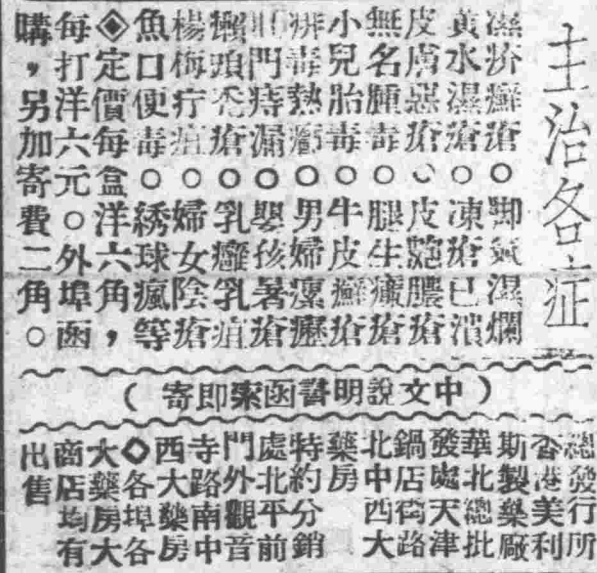 主治各症
濕疥癬瘡○脚氣濕爛
黃水濕瘡○凍瘡已潰
皮膚惡瘡○皮膿瘡
無名腫毒○腿生瘡
小兒胎毒○牛皮癬瘡
毒熱癤○男婦瘰癧
肛門痔漏○嬰孩暑瘡
懶頭禿瘡○乳癰乳疽
楊梅疔疽○婦女陰瘡
魚口便毒○綉球瘋等
◈定價每盒洋六角，
每打洋六元。外埠函
購，另加寄費二角。
（中文說明書函索即寄）
總發行所
香港美利
斯製藥廠
華北總批
發處天津
鍋店街路
北中西大
藥房
特約分銷
處北平前
門外觀音
寺路南中
西大藥房
◇各埠各
大藥房大
商店均有
出售